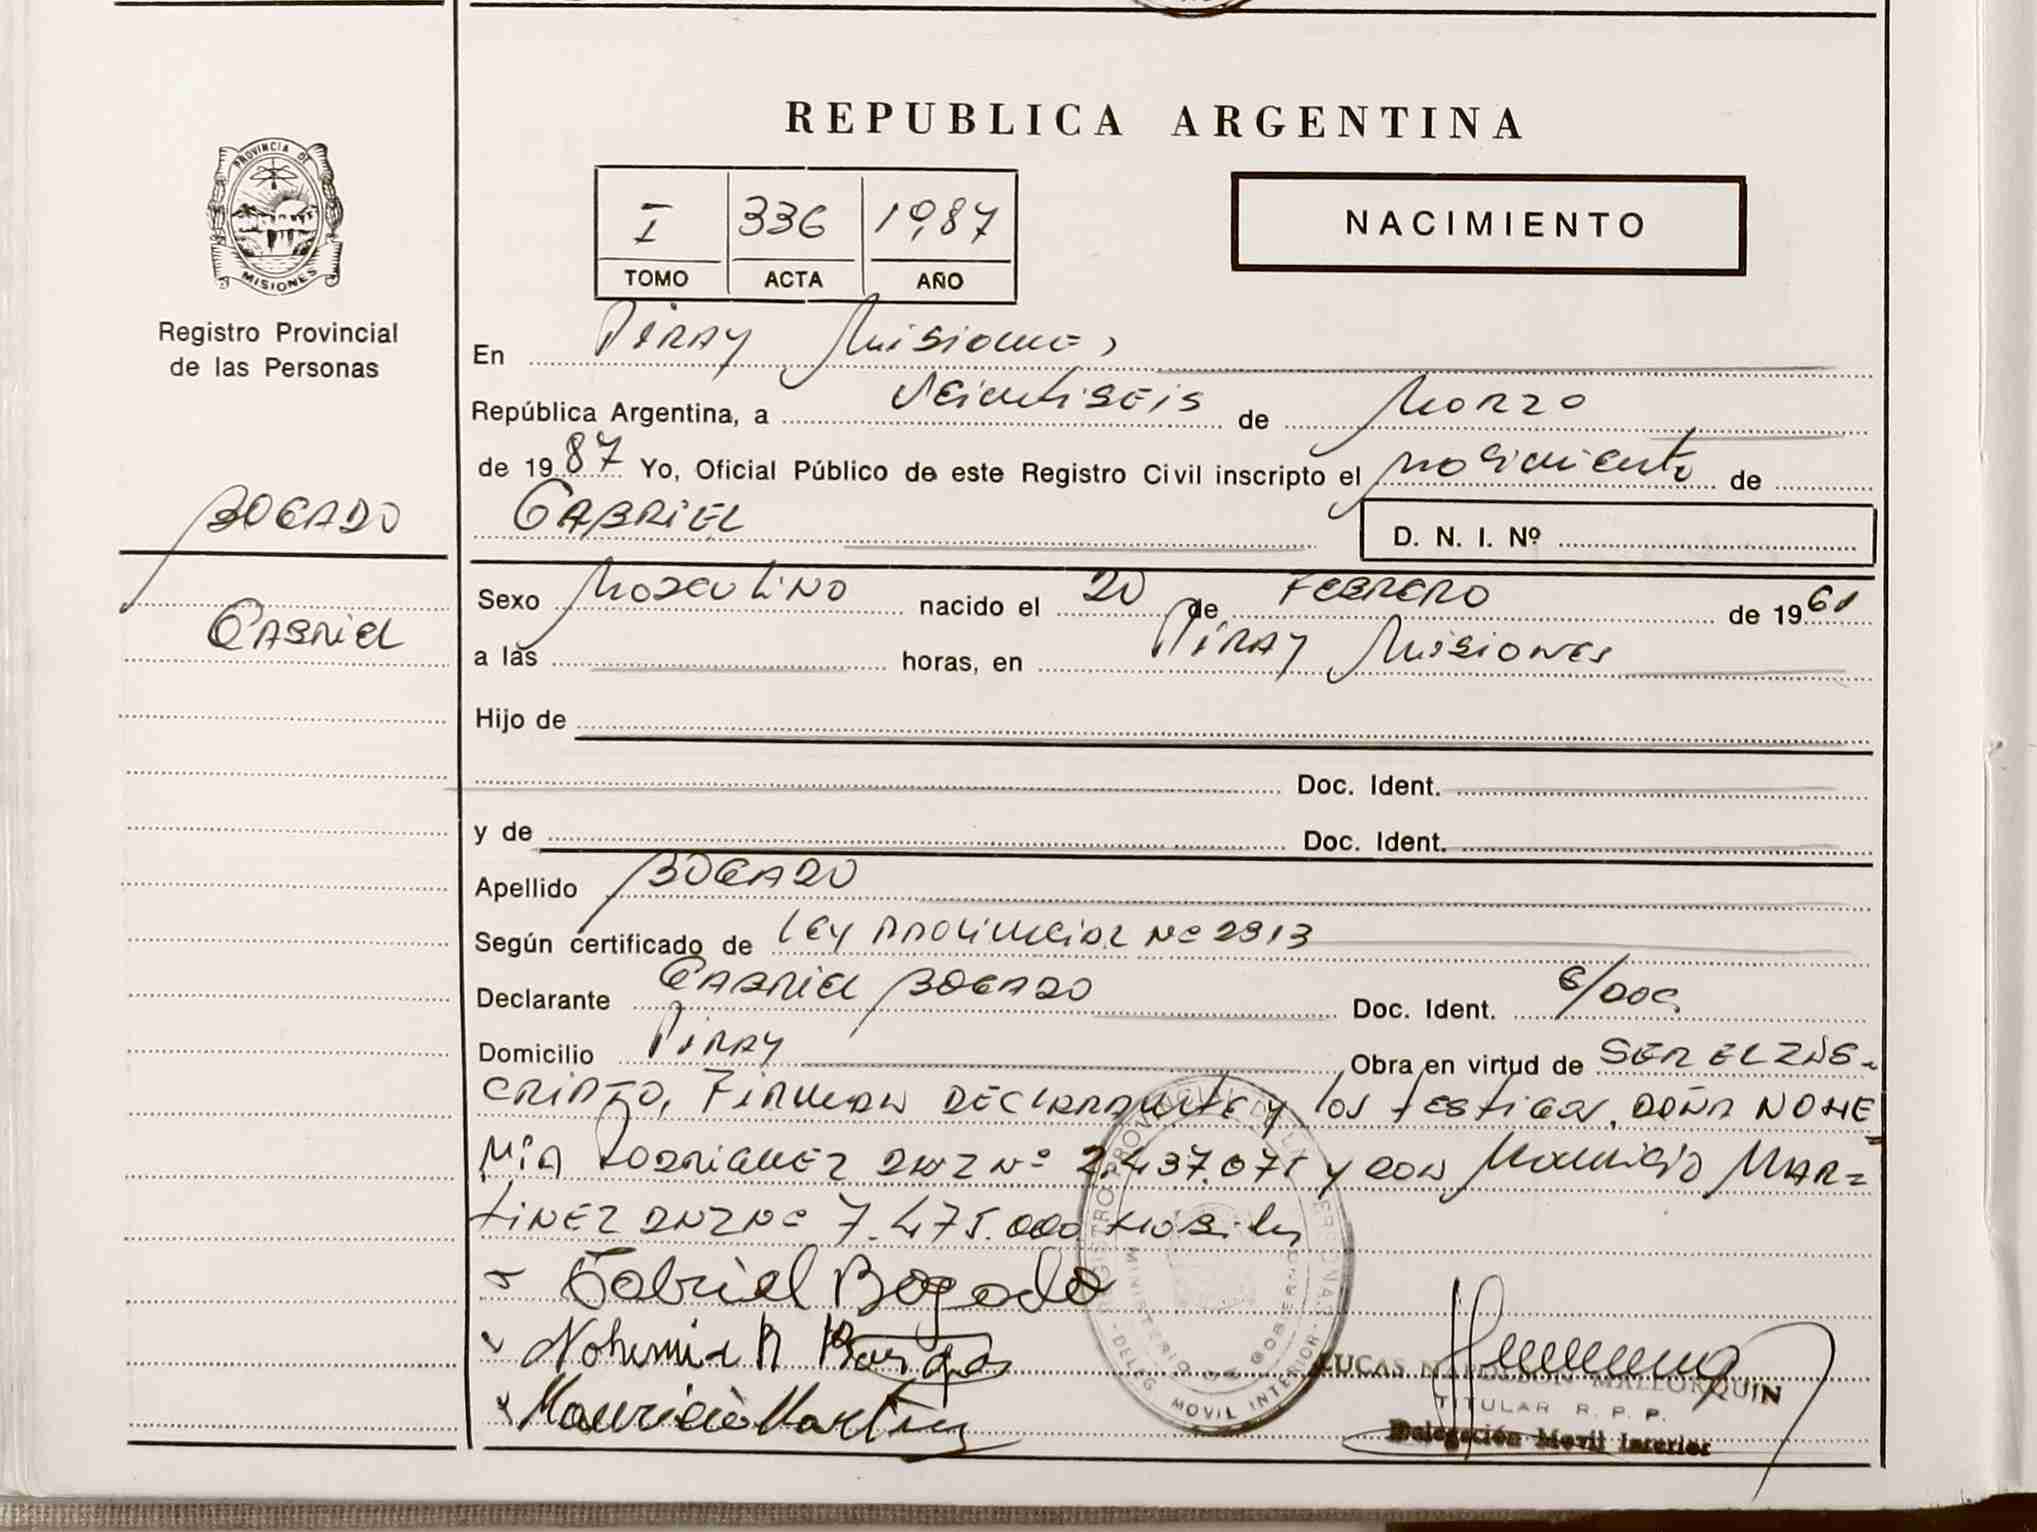 REPUBLICA ARGENTINA
PROVINCIA DE
MISIONES
Registro Provincial
de las Personas
I 336 1987
TOMO ACTA AÑO
NACIMIENTO
En Piray Misiones,
República Argentina, a veintiseis de Marzo
de 1987 Yo, Oficial Público de este Registro Civil inscripto el nacimiento de
BOGADO
GABRIEL
D. N. I. Nº
Sexo Masculino nacido el 20 de FEBRERO de 1961
GABRIEL
a las horas, en Piray Misiones
Hijo de
Doc. Ident.
y de Doc. Ident.
Apellido BOGADO
Según certificado de Ley Provincial Nº 2313
Declarante GABRIEL BOGADO Doc. Ident. S/DOC
Domicilio Piray Obra en virtud de SER EL INS-
CRIPTO, Firman DECLARANTE y los testigos, DOÑA NOHE-
MIA RODRIGUEZ DNI Nº 2.437.071 y DON Mauricio MAR-
TINEZ DNI Nº 7.475.000
Gabriel Bogado
Nohemia R
Mauricio Martinez
REGISTRO PROVINCIAL DE LAS PERSONAS
MINISTERIO DE GOBIERNO
- DELEG. MOVIL INTERIOR -
LUCAS NAPOLEON MALLORQUIN
TITULAR R. P. P.
Delegación Movil Interior